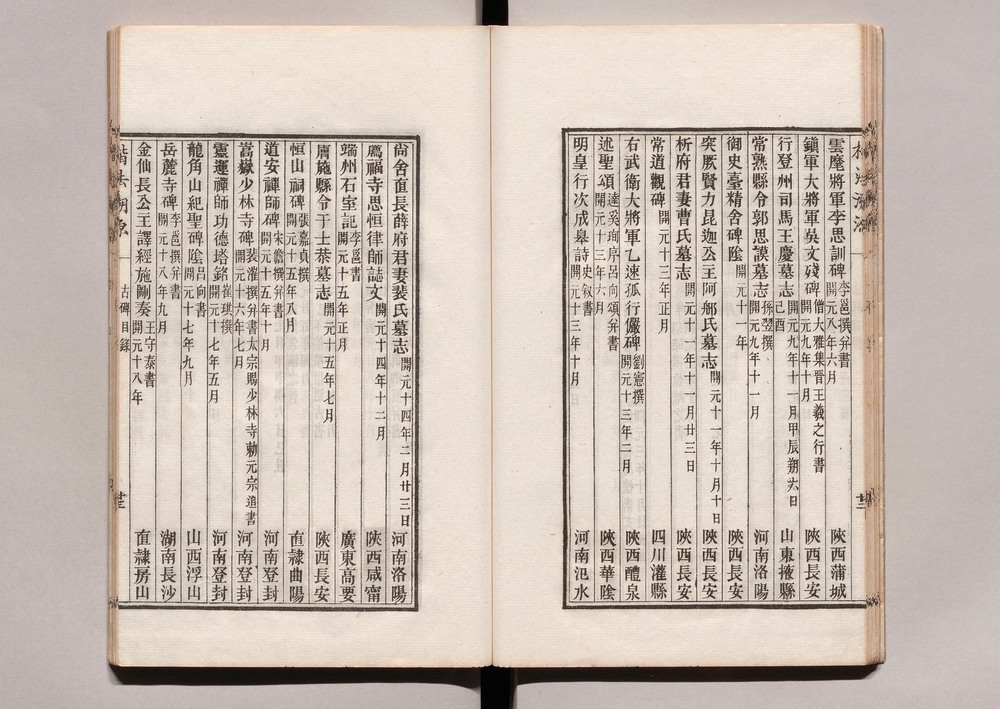 雲麾將軍李思訓碑 李邕撰并書 開元八年六月 陝西蒲城
鎭軍大將軍吳文殘碑 僧大雅集晉王羲之行書 開元九年十月 陝西長安
行登州司馬王慶墓志 開元九年十一月甲辰朔六日己酉 山東掖縣
常熟縣令郭思謨墓志 孫翌撰 開元九年十一月 河南洛陽
御史臺精舍碑陰 開元十一年 陝西長安
突厥賢力毘迦公主阿郍氏墓志 開元十一年十月十日 陝西長安
析府君妻曹氏墓志 開元十一年十一月廿三日 陝西長安
常道觀碑 開元十三年正月 四川灌縣
右武衛大將軍乙速孤行儼碑 劉憲撰 開元十三年二月 陝西醴泉
述聖頌 達奚珣序呂向頌并書 開元十三年六月 陝西華陰
明皇行次成皋詩 史叙書 開元十三年十月 河南氾水
尙舍直長薛府君妻裴氏墓志 開元十四年二月廿三日 河南洛陽
薦福寺思恒律師誌文 開元十四年十二月 陝西咸甯
端州石室記 李邕書 開元十五年正月 廣東高要
膚施縣令于士恭墓志 開元十五年七月 陝西長安
恒山祠碑 張嘉貞撰 開元十五年八月 直隸曲陽
道安禪師碑 宋儋撰并書 開元十五年十月 河南登封
嵩嶽少林寺碑 裴漼撰并書太宗賜少林寺勅元宗追書 開元十六年七月 河南登封
靈運禪師功德塔銘 崔琪撰 開元十七年五月 河南登封
龍角山紀聖碑陰 呂向書 開元十七年九月 山西浮山
岳麓寺碑 李邕撰并書 開元十八年九月 湖南長沙
金仙長公主譯經施剛奏 王守泰書 開元十八年 直隸房山
古碑目錄